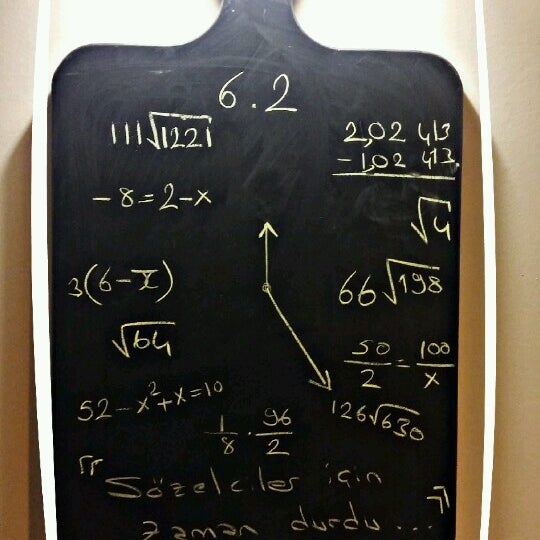 6.2
111√1221
2,02 413
- 1,02 413
-8=2-x
√4
3(6-π)
66√198
√64
50/2=100/x
52-x²+x=10
126√630
1/8 . 96/2
"Sözelciler için
zaman durdu..."